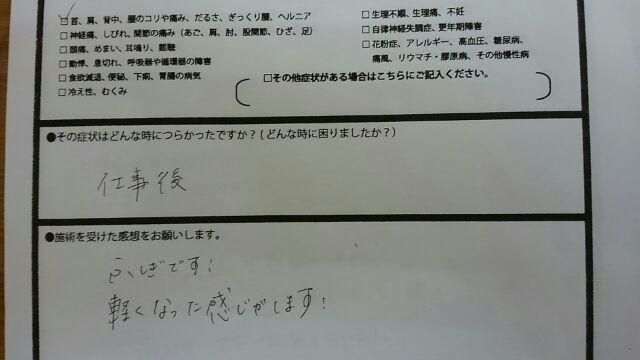 ☑首、肩、背中、腰のコリや痛み、だるさ、ぎっくり腰、ヘルニア
□神経痛、しびれ、関節の痛み（あご、肩、肘、股関節、ひざ、足）
□頭痛、めまい、耳鳴り、難聴
□動悸、息切れ、呼吸器や循環器の障害
□食欲減退、便秘、下痢、胃腸の病気
□冷え性、むくみ
□生理不順、生理痛、不妊
□自律神経失調症、更年期障害
□花粉症、アレルギー、高血圧、糖尿病、
痛風、リウマチ・膠原病、その他慢性病
□その他症状がある場合はこちらにご記入ください。
●その症状はどんな時につらかったですか？（どんな時に困りましたか？）
仕事後
●施術を受けた感想をお願いします。
ふしぎです！
軽くなった感じがします！